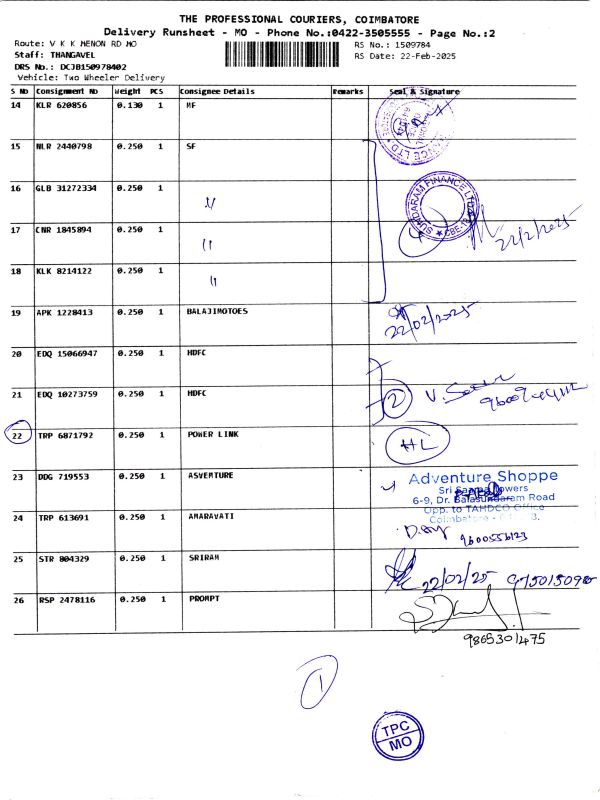 THE PROFESSIONAL COURIERS, COIMBATORE
Delivery Runsheet - MO - Phone No.:0422-3505555 - Page No.:2
Route: V K K MENON RD MO
RS No.: 1509784
Staff: THANGAVEL
RS Date: 22-Feb-2025
DRS No.: DCJB150978402
Vehicle: Two Wheeler Delivery
S No Consignment No Weight PCS Consignee Details Remarks Seal & Signature
14 KLR 620856 0.130 1 MF
15 NLR 2440798 0.250 1 SF
16 GLB 31272334 0.250 1 〃
SUNDARAM FINANCE LTD
CBE
17 CNR 1845894 0.250 1 〃
22/2/2025
18 KLK 8214122 0.250 1 〃
19 APK 1228413 0.250 1 BALAJIMOTOES
22/02/2025
20 EDQ 15066947 0.250 1 HDFC
21 EDQ 10273759 0.250 1 HDFC
2
22 TRP 6871792 0.250 1 POWER LINK HL
23 DDG 719553 0.250 1 ASVENTURE
Adventure Shoppe
Sri Towers
6-9, Dr. Balasundaram Road
Opp. to TAHDCO Office
Coimbatore
24 TRP 613691 0.250 1 AMARAVATI
9600556123
25 STR 804329 0.250 1 SRIRAM
22/02/25
26 RSP 2478116 0.250 1 PROMPT
9865301475
1
TPC
MO